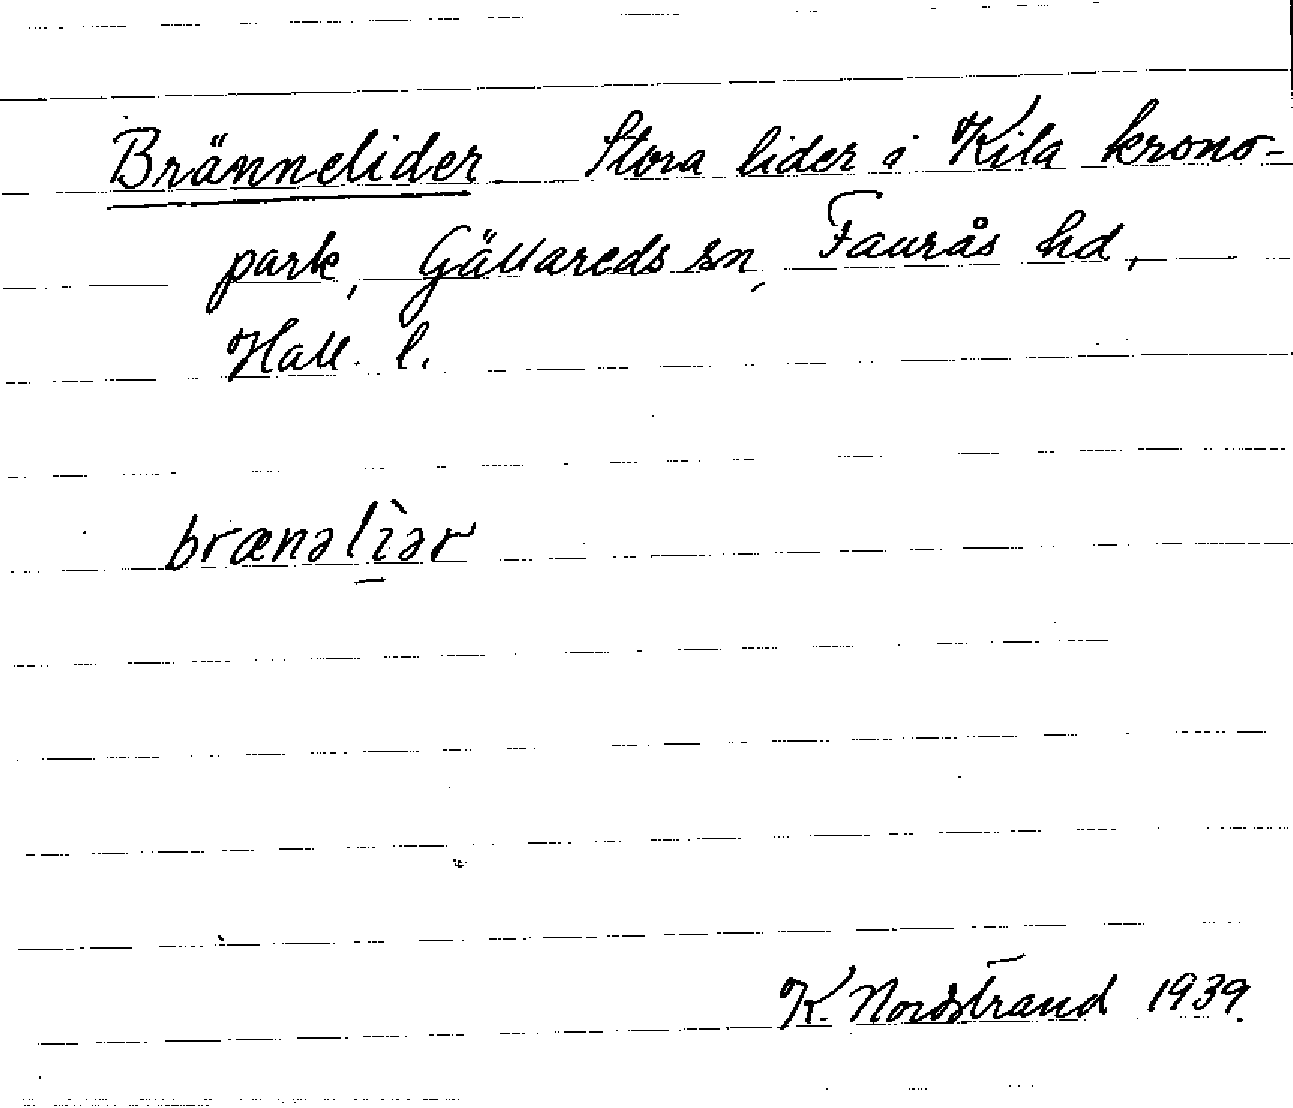 Brännelider Stora lider i Kila krono-
park, Gällareds sn, Faurås hd,
Hall. l.
brænəlìər
K. Nordstrand 1939.